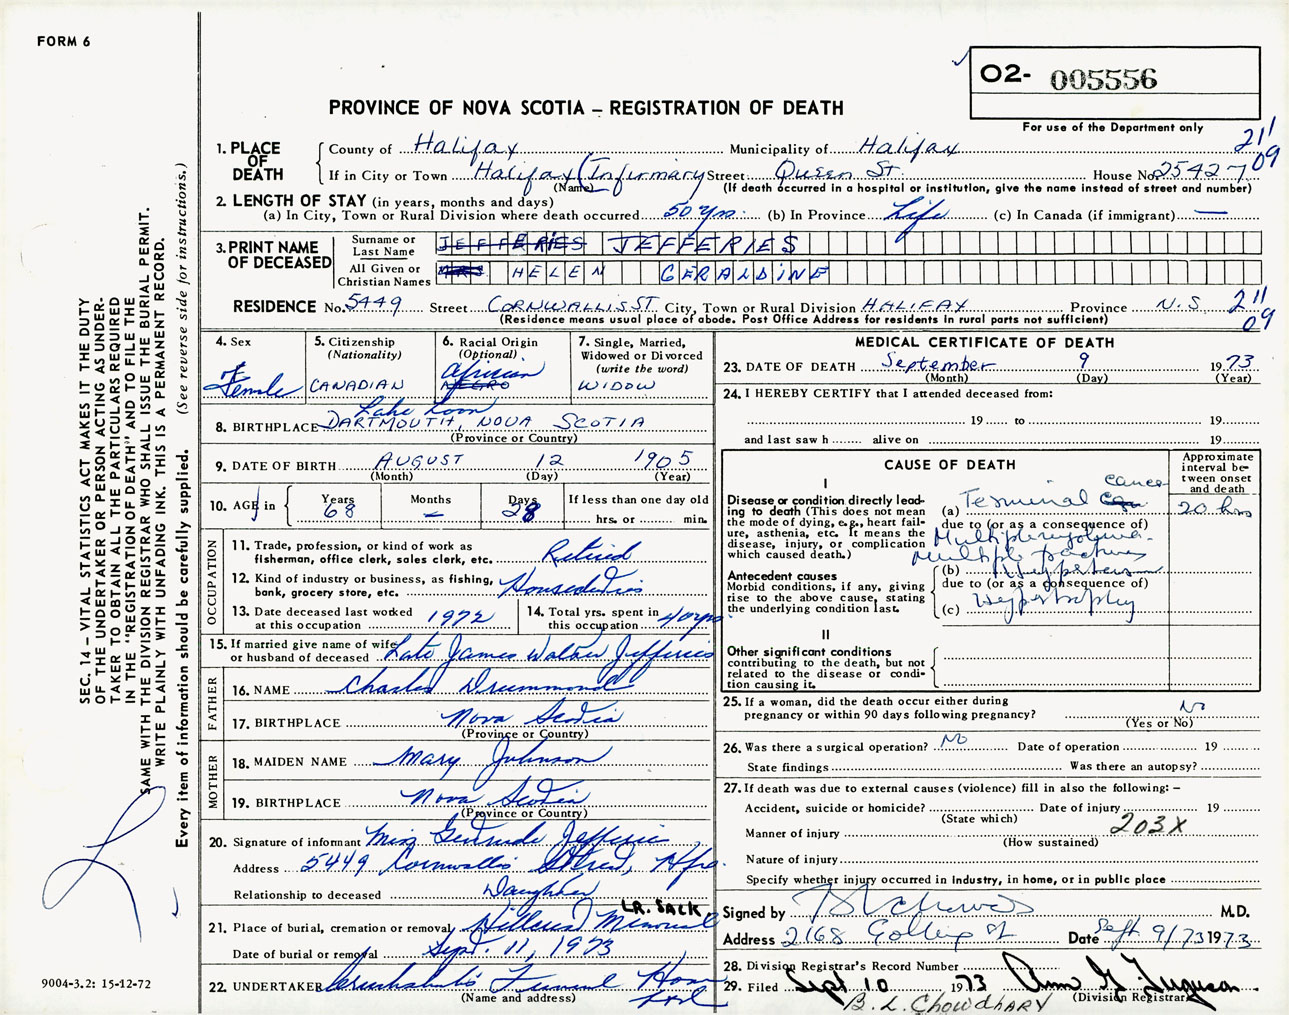 FORM 6
O2- 005556
PROVINCE OF NOVA SCOTIA – REGISTRATION OF DEATH
For use of the Department only
1. PLACE OF DEATH
County of Halifax Municipality of Halifax 211
If in City or Town Halifax (Infirmary Street Queen St. House No. 25427 09
(Name) (If death occurred in a hospital or institution, give the name instead of street and number)
2. LENGTH OF STAY (in years, months and days)
(a) In City, Town or Rural Division where death occurred 50 yrs. (b) In Province Life (c) In Canada (if immigrant) —
3. PRINT NAME OF DECEASED
Surname or Last Name JEFFERIES JEFFERIES
All Given or Christian Names MRS HELEN GERALDINE
RESIDENCE No. 5449 Street CORNWALLIS ST City, Town or Rural Division HALIFAX Province N.S. 211
(Residence means usual place of abode. Post Office Address for residents in rural parts not sufficient) 09
4. Sex Female
5. Citizenship (Nationality) CANADIAN
6. Racial Origin (Optional) African NEGRO
7. Single, Married, Widowed or Divorced (write the word) WIDOW
Lake Loon
8. BIRTHPLACE DARTMOUTH, NOVA SCOTIA
(Province or Country)
9. DATE OF BIRTH AUGUST 12 1905
(Month) (Day) (Year)
10. AGE in Years 68 Months – Days 28 If less than one day old
hrs. or min.
OCCUPATION
11. Trade, profession, or kind of work as fisherman, office clerk, sales clerk, etc. Retired
12. Kind of industry or business, as fishing, bank, grocery store, etc.
13. Date deceased last worked at this occupation 1972
14. Total yrs. spent in this occupation 40 yrs.
15. If married give name of wife or husband of deceased Late James Walter Jefferies
FATHER
16. NAME Charles Drummond
17. BIRTHPLACE Nova Scotia
(Province or Country)
MOTHER
18. MAIDEN NAME Mary Johnson
19. BIRTHPLACE Nova Scotia
(Province or Country)
20. Signature of informant Miss Gertrude Jefferies
Address 5449 Cornwallis Street, Hfx.
Relationship to deceased Daughter
LR. SACK.
21. Place of burial, cremation or removal Memorial
Date of burial or removal Sept. 11, 1973
22. UNDERTAKER Cruikshank's Funeral Home
(Name and address)
MEDICAL CERTIFICATE OF DEATH
23. DATE OF DEATH September 9 1973
(Month) (Day) (Year)
24. I HEREBY CERTIFY that I attended deceased from:
19 to 19
and last saw h alive on 19
CAUSE OF DEATH
Approximate interval between onset and death
I
Disease or condition directly leading to death (This does not mean the mode of dying, e.g., heart failure, asthenia, etc. It means the disease, injury, or complication which caused death.)
(a) Terminal cancer 20 hrs
due to (or as a consequence of)
Multiple myeloma
Multiple fractures
Antecedent causes
Morbid conditions, if any, giving rise to the above cause, stating the underlying condition last.
(b)
due to (or as a consequence of)
(c) Hypertrophy
II
Other significant conditions
contributing to the death, but not related to the disease or condition causing it.
25. If a woman, did the death occur either during pregnancy or within 90 days following pregnancy? No
(Yes or No)
26. Was there a surgical operation? No Date of operation 19
State findings Was there an autopsy?
27. If death was due to external causes (violence) fill in also the following: –
Accident, suicide or homicide? Date of injury 19
(State which)
Manner of injury 203X
(How sustained)
Nature of injury
Specify whether injury occurred in Industry, in home, or in public place
Signed by M.D.
Address 2168 Gottingen St Date Sept 9/73 1973
28. Division Registrar's Record Number
29. Filed Sept 10 1973 Ann G Ferguson
(Division Registrar)
B. L. CHOWDHARY
SEC. 14 – VITAL STATISTICS ACT MAKES IT THE DUTY
OF THE UNDERTAKER OR PERSON ACTING AS UNDER-
TAKER TO OBTAIN ALL THE PARTICULARS REQUIRED
IN THE "REGISTRATION OF DEATH" AND TO FILE THE
SAME WITH THE DIVISION REGISTRAR WHO SHALL ISSUE THE BURIAL PERMIT.
WRITE PLAINLY WITH UNFADING INK. THIS IS A PERMANENT RECORD.
Every item of information should be carefully supplied. (See reverse side for instructions.)
9004-3.2: 15-12-72